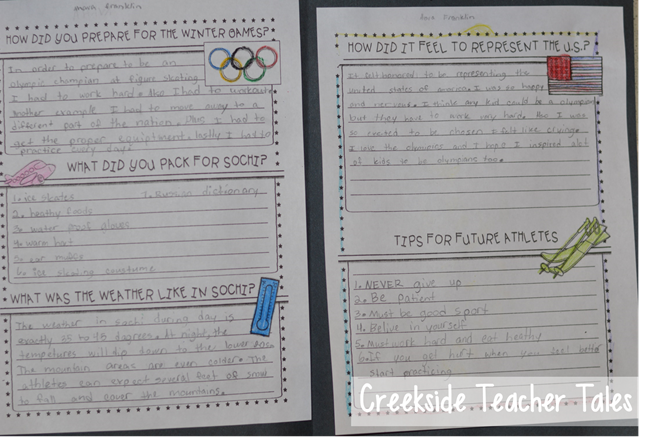 franklin
HOW DID YOU PREPARE FOR THE WINTER GAMES?
In order to prepare to be an
olympic champion at figure skating
I had to work hard. Also I had to workout
another example I had to move away to a
different part of the nation. Plus I had to
get the proper equiptment. lastly I had to
practice every day!
WHAT DID YOU PACK FOR SOCHI?
1. ice skates 7. Russian dictionary
2. healthy foods
3. water proof gloves
4. warm hat
5. ear muffs
6. ice skating coustume
WHAT WAS THE WEATHER LIKE IN SOCHI?
The weather in sochi during day is
exactly 25 to 48 degrees. At night, the
tempetures will dip down to the lower 20s.
The mountain areas are even colder. The
athletes can expect several foot of snow
to fall and cover the mountains.
Franklin
HOW DID IT FEEL TO REPRESENT THE U.S.?
It felt honored to be representing the
united states of america. I was so happy
and nervous. I think any kid could be a olympian
but they have to work very hard. Also I was
so excited to be chosen I felt like crying.
I love the olympics and I hope I inspired alot
of kids to be olympians too.
TIPS FOR FUTURE ATHLETES
1. NEVER give up
2. Be patient
3. Must be good sport
4. Belive in yourself
5. Must work hard and eat healthy
6. If you get hurt when you feel better
start practicing
Creekside Teacher Tales